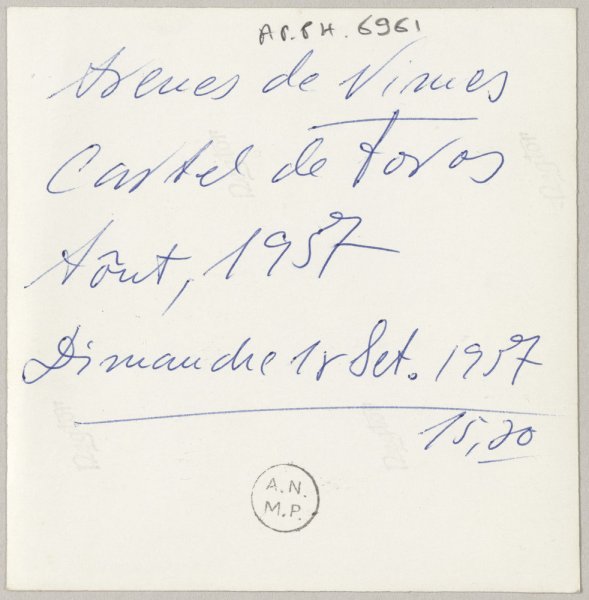 AP.PH. 6961
Arenes de Nimes
Cartel de toros
Aôut, 1957
Dimanche 1r Set. 1957
15,20
A.N.
M.P.